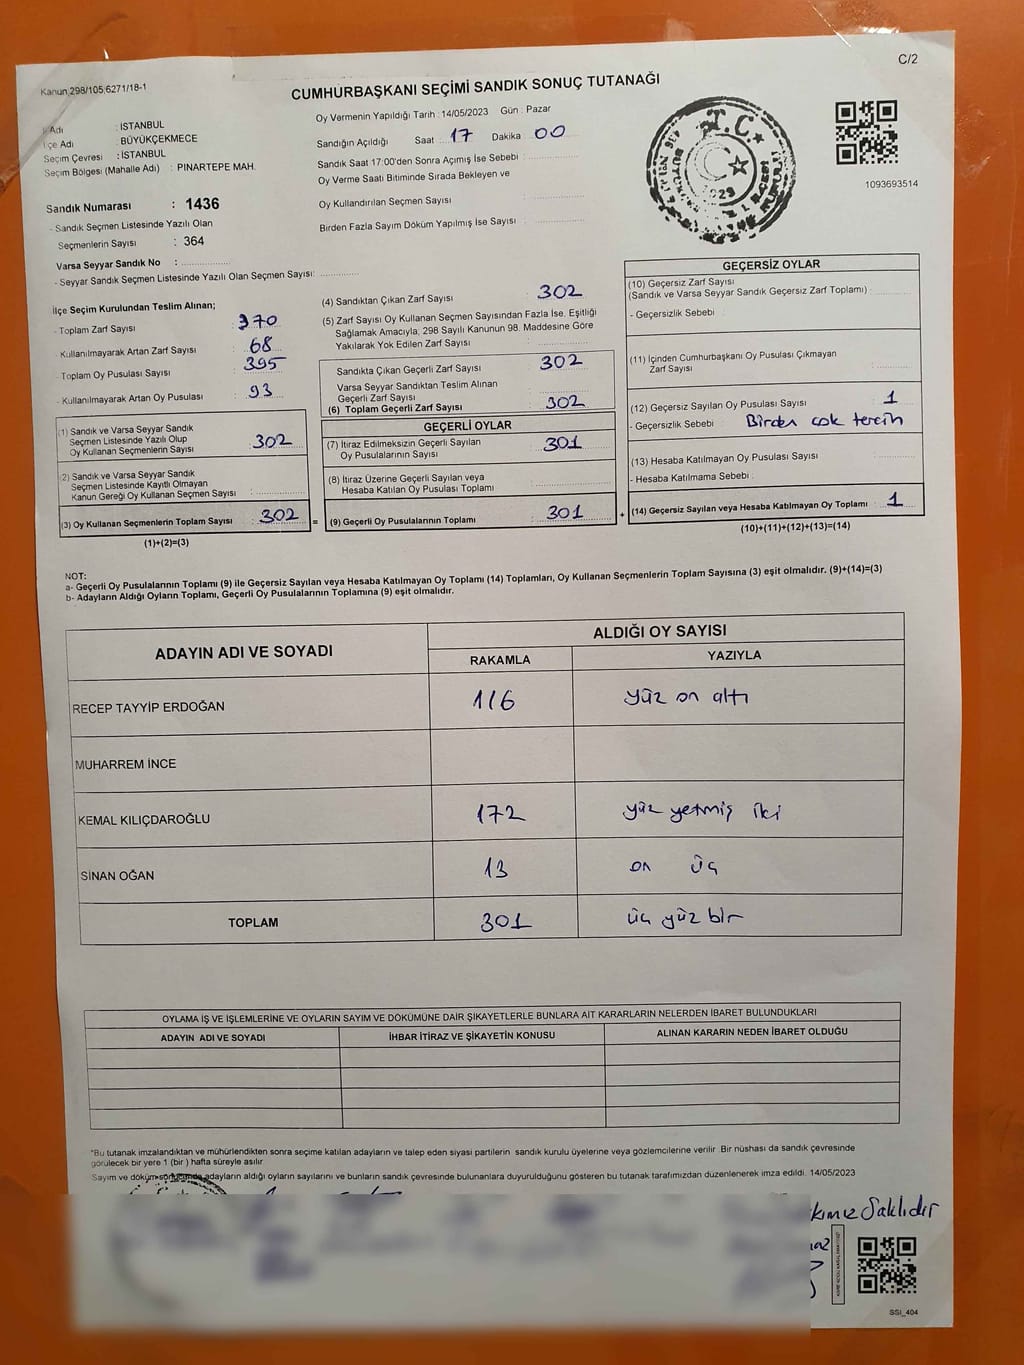 C/2
Kanun 298/105;6271/18-1
CUMHURBAŞKANI SEÇİMİ SANDIK SONUÇ TUTANAĞI
İl Adı : İSTANBUL
İlçe Adı : BÜYÜKÇEKMECE
Seçim Çevresi : İSTANBUL
Seçim Bölgesi (Mahalle Adı) : PINARTEPE MAH.
Sandık Numarası : 1436
- Sandık Seçmen Listesinde Yazılı Olan
Seçmenlerin Sayısı : 364
Varsa Seyyar Sandık No :
- Seyyar Sandık Seçmen Listesinde Yazılı Olan Seçmen Sayısı:
Oy Vermenin Yapıldığı Tarih : 14/05/2023 Gün : Pazar
Sandığın Açıldığı Saat : 17 Dakika : 00
Sandık Saat 17:00'den Sonra Açımış İse Sebebi :
Oy Verme Saati Bitiminde Sırada Bekleyen ve
Oy Kullandırılan Seçmen Sayısı :
Birden Fazla Sayım Döküm Yapılmış İse Sayısı :
T.C.
1093693514
İlçe Seçim Kurulundan Teslim Alınan;
- Toplam Zarf Sayısı : 370
- Kullanılmayarak Artan Zarf Sayısı : 68
- Toplam Oy Pusulası Sayısı : 395
- Kullanılmayarak Artan Oy Pusulası : 93
(1) Sandık ve Varsa Seyyar Sandık
Seçmen Listesinde Yazılı Olup
Oy Kullanan Seçmenlerin Sayısı : 302
(2) Sandık ve Varsa Seyyar Sandık
Seçmen Listesinde Kayıtlı Olmayan
Kanun Gereği Oy Kullanan Seçmen Sayısı :
(3) Oy Kullanan Seçmenlerin Toplam Sayısı : 302
(1)+(2)=(3)
(4) Sandıktan Çıkan Zarf Sayısı : 302
(5) Zarf Sayısı Oy Kullanan Seçmen Sayısından Fazla İse, Eşitliği
Sağlamak Amacıyla, 298 Sayılı Kanunun 98. Maddesine Göre
Yakılarak Yok Edilen Zarf Sayısı :
Sandıkta Çıkan Geçerli Zarf Sayısı : 302
Varsa Seyyar Sandıktan Teslim Alınan
Geçerli Zarf Sayısı :
(6) Toplam Geçerli Zarf Sayısı : 302
GEÇERLİ OYLAR
(7) İtiraz Edilmeksizin Geçerli Sayılan
Oy Pusulalarının Sayısı : 301
(8) İtiraz Üzerine Geçerli Sayılan veya
Hesaba Katılan Oy Pusulası Toplamı :
= (9) Geçerli Oy Pusulalarının Toplamı : 301
GEÇERSİZ OYLAR
(10) Geçersiz Zarf Sayısı
(Sandık ve Varsa Seyyar Sandık Geçersiz Zarf Toplamı) :
- Geçersizlik Sebebi :
(11) İçinden Cumhurbaşkanı Oy Pusulası Çıkmayan
Zarf Sayısı :
(12) Geçersiz Sayılan Oy Pusulası Sayısı : 1
- Geçersizlik Sebebi : Birden çok tercih
(13) Hesaba Katılmayan Oy Pusulası Sayısı :
- Hesaba Katılmama Sebebi :
+ (14) Geçersiz Sayılan veya Hesaba Katılmayan Oy Toplamı : 1
(10)+(11)+(12)+(13)=(14)
NOT:
a- Geçerli Oy Pusulalarının Toplamı (9) ile Geçersiz Sayılan veya Hesaba Katılmayan Oy Toplamı (14) Toplamları, Oy Kullanan Seçmenlerin Toplam Sayısına (3) eşit olmalıdır. (9)+(14)=(3)
b- Adayların Aldığı Oyların Toplamı, Geçerli Oy Pusulalarının Toplamına (9) eşit olmalıdır.
ADAYIN ADI VE SOYADI
ALDIĞI OY SAYISI
RAKAMLA YAZIYLA
RECEP TAYYİP ERDOĞAN 116 yüz on altı
MUHARREM İNCE
KEMAL KILIÇDAROĞLU 172 yüz yetmiş iki
SİNAN OĞAN 13 on üç
TOPLAM 301 üç yüz bir
OYLAMA İŞ VE İŞLEMLERİNE VE OYLARIN SAYIM VE DÖKÜMÜNE DAİR ŞİKAYETLERLE BUNLARA AİT KARARLARIN NELERDEN İBARET BULUNDUKLARI
ADAYIN ADI VE SOYADI İHBAR İTİRAZ VE ŞİKAYETİN KONUSU ALINAN KARARIN NEDEN İBARET OLDUĞU
*Bu tutanak imzalandıktan ve mühürlendikten sonra seçime katılan adayların ve talep eden siyasi partilerin sandık kurulu üyelerine veya gözlemcilerine verilir. Bir nüshası da sandık çevresinde
görülecek bir yere 1 (bir) hafta süreyle asılır.
Sayım ve döküm sonucunda adayların aldığı oyların sayılarını ve bunların sandık çevresinde bulunanlara duyurulduğunu gösteren bu tutanak tarafımızdan düzenlenerek imza edildi. 14/05/2023
Saklıdır
SSI_404